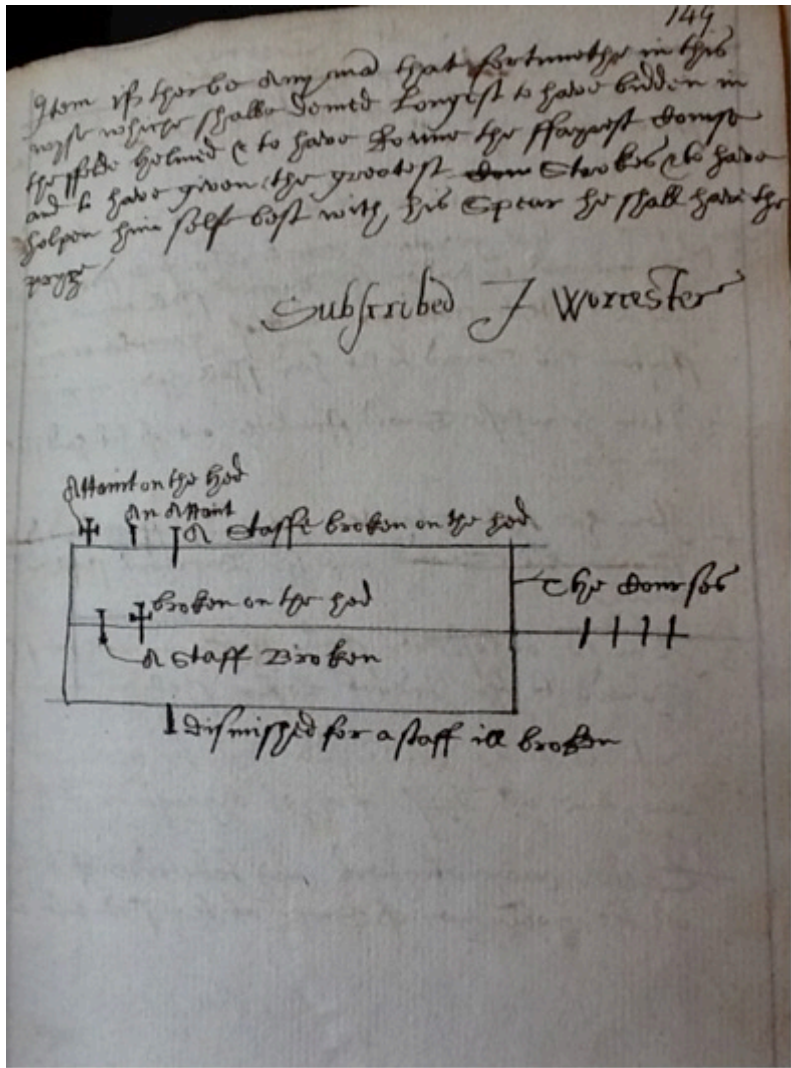 149
Item if ther be any mã that fortunethe in this
wyse whiche shalbe demed Longest to have bidden in
the ffelde helmed & to have Ronne the ffayrest Course
and to have given the greatest Strokes & to have
holpen him self best with his Spear he shall have the
pryze
Subscribed J Worcester
Attaint on the hed
An Attaint
A Staffe broken on the hed
The Courses
broken on the hed
A Staff Broken
diminished for a staff ill broken